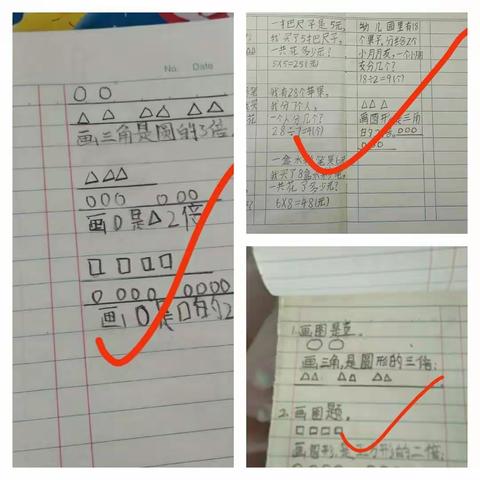 No. Date
○ ○
△ △ △△ △△
画三角是圆的3倍
△△△
○○○ ○○○
画○是△2倍
□ □ □ □
○ ○○○ ○○○○
画○是□的2
一把尺子是5元,
我买了5把尺子,
一共花多少元?
5×5=25(元)
我有28个苹果,
我分7个人,
一个人分几个?
28÷7=4(个)
我买了8盒水
一共花了多少元?
6×8=48(元)
幼儿园里有18
个果子,分给2个
小朋友,一个小朋
友分几个?
18÷2=9(个)
△△ △
画圆形是三角
○○○
○○○
1.画图
○ ○
画三角,是圆形的三倍;
△△ △△ △△
2.画图题,
□□□□
画圆形,是正方形的二倍;